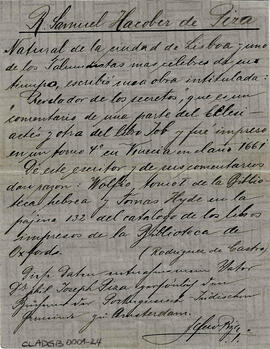 R. Samuel Hacober de Piza
Natural de la ciudad de Lisboa y uno
de los Talmudistas mas célebres de su
tiempo, escribió una obra intitulada:
"Revelador de los secretos", que es un
comentario de una parte del Ecle-
siastés y otra del libro Job y fué impreso
en un tomo 4º en Venecia en el año 1661
De este escritor y de sus comentarios
dan razon: Wolfio, tomo 1 de la Biblio-
teca hebrea y Tomas Hyde en la
pájina 132 del catalogo de los libros
impresos de la Biblioteca de
Oxford.
(Rodriguez de Castro)
Joseph Piza
Portugiesisch
Amsterdam.
CLADGB0004-24